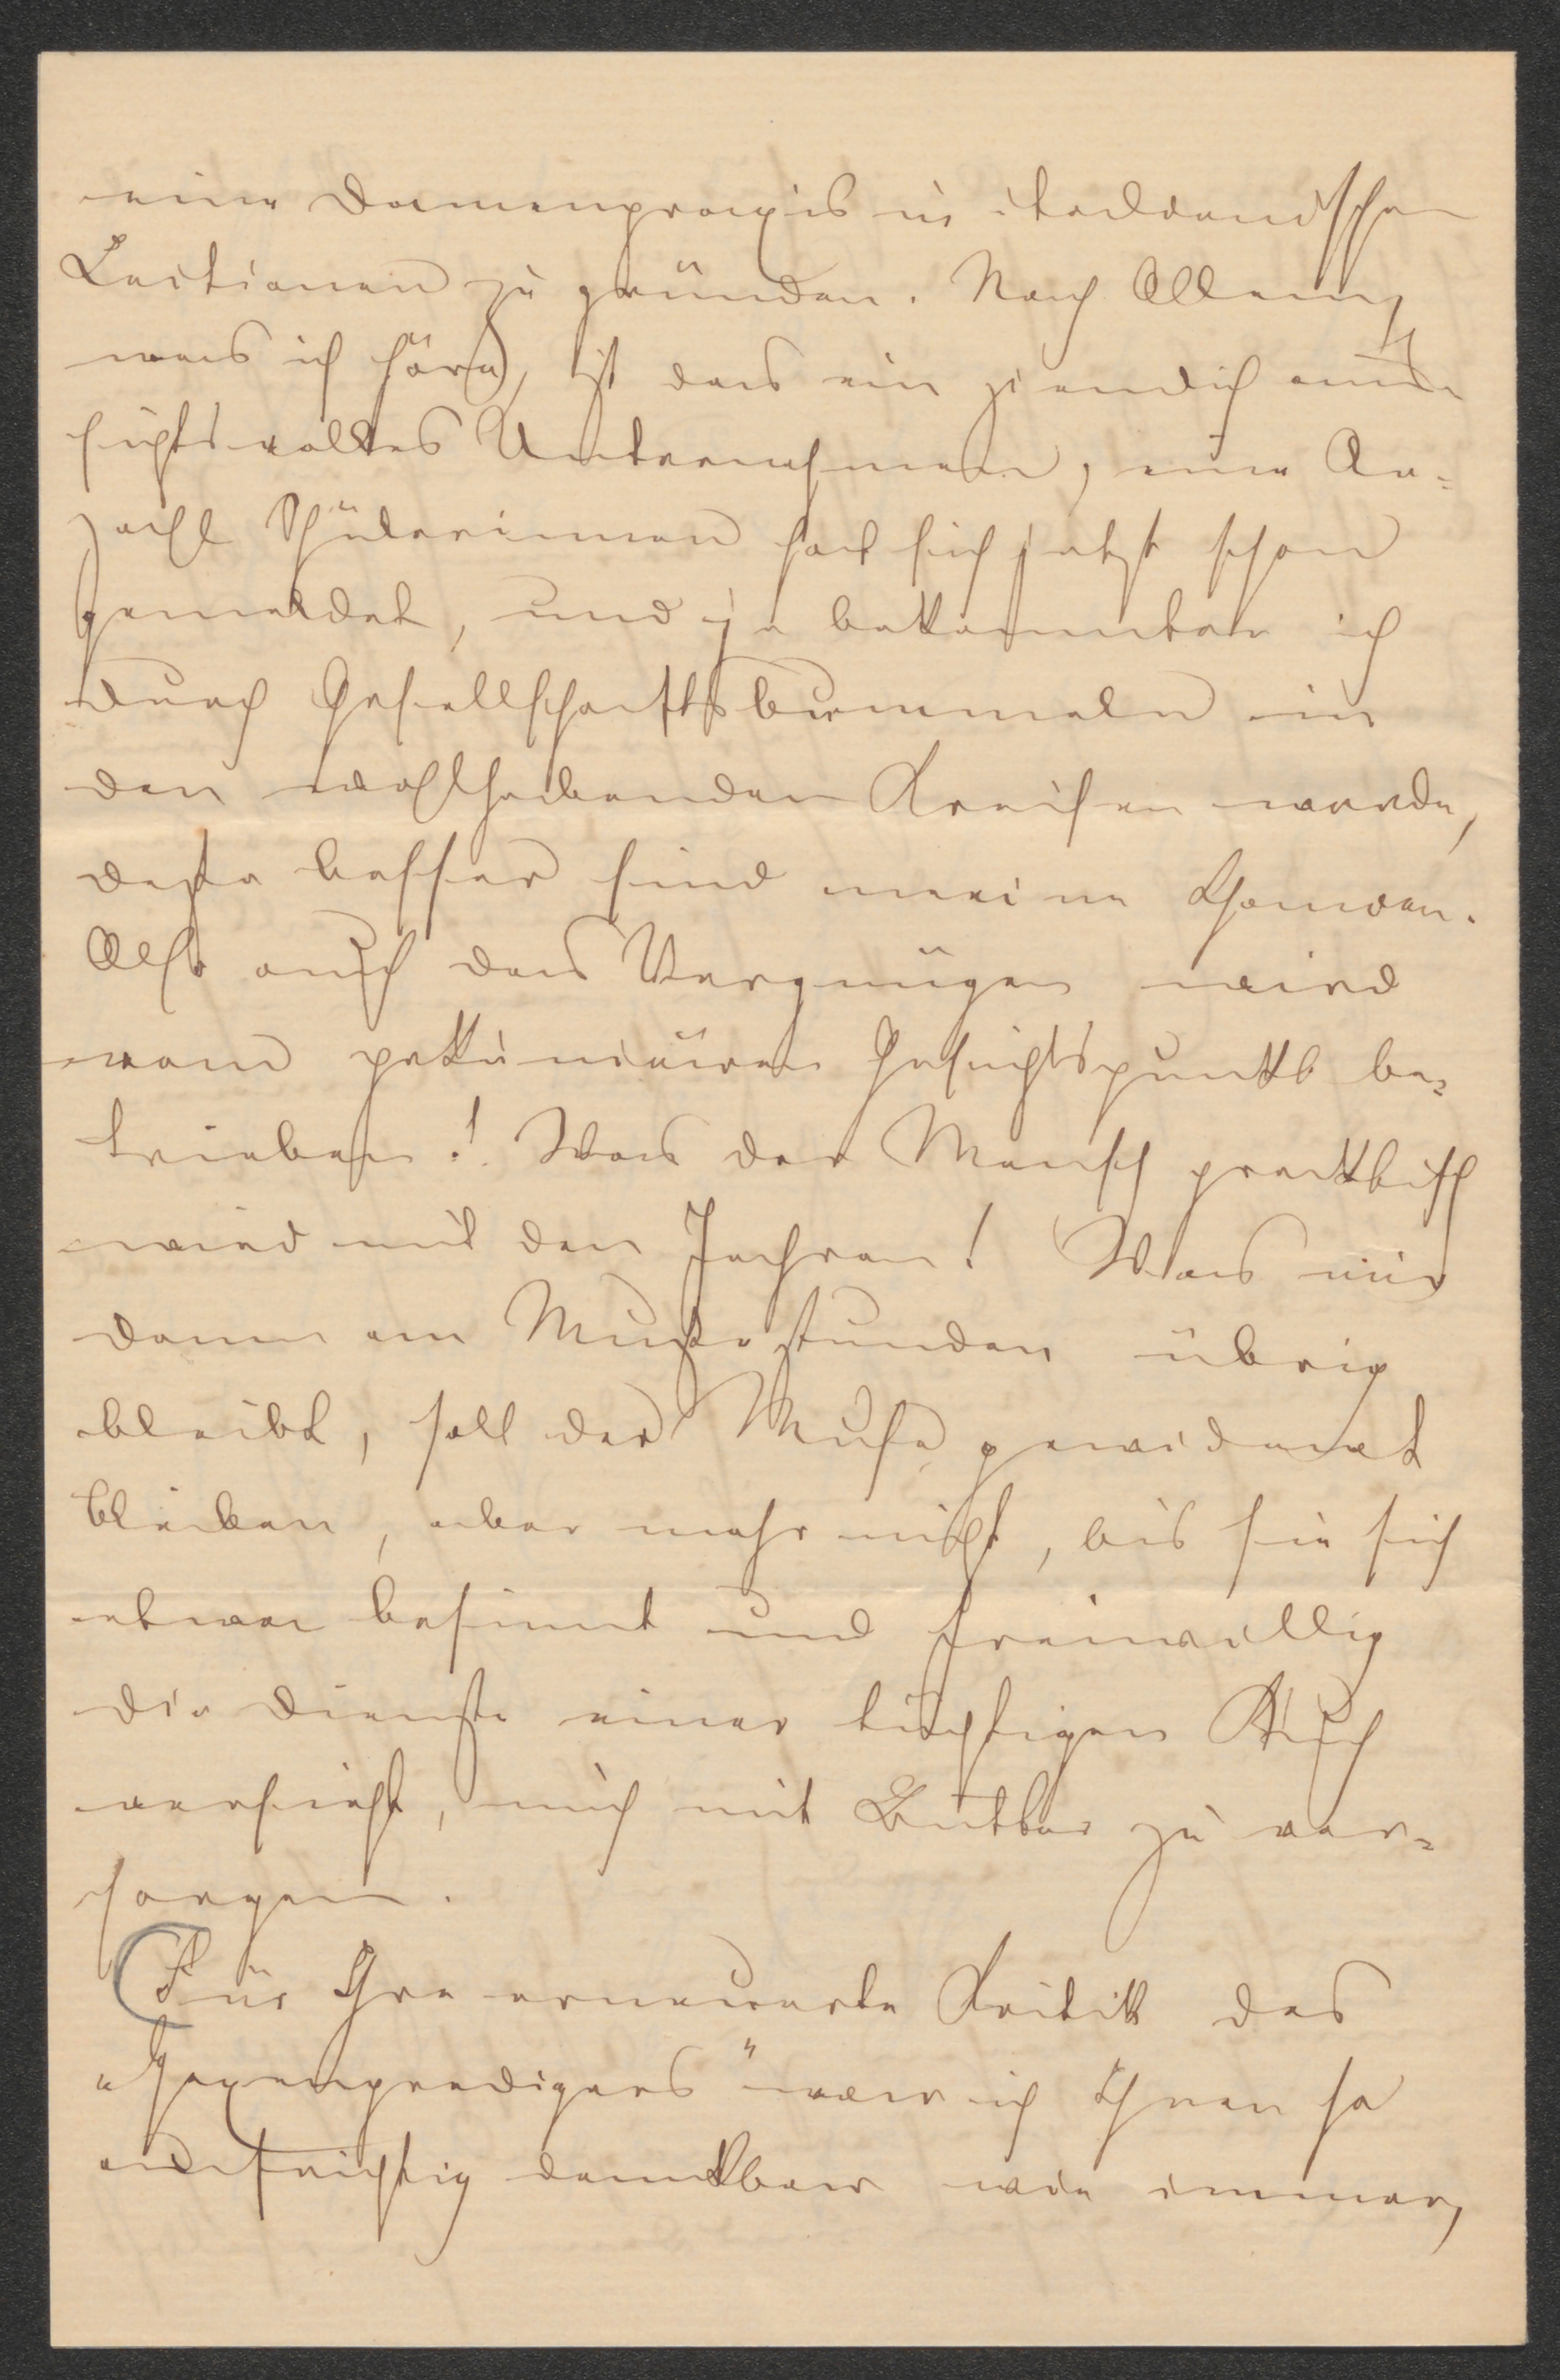 eine Damenpraxis in italienischen
Lectionen zu gründen. Nach Allem,
was ich höre, ist das ein ziemlich aus-
sichtsvolles Unternehmen, eine An=
zahl Schülerinnen hat sich jetzt schon
gemeldet, und je bekannter ich
durch Gesellschaftsbummeln in
den wohlhabenden Kreisen werde,
desto besser sind meine Chancen.
Also auch das Vergnügen wird
vom pekuniären Gesichtspunkt be=
trieben! Was der Mensch praktisch
wird mit den Jahren! Was mir
dann an Mußestunden übrig
bleibt, soll der Muse gewidmet
bleiben, aber mehr nicht, bis sie sich
etwa besinnt und freiwillig
die Dienste einer tüchtigen Kuh
versieht, mich mit Butter zu ver=
sorgen.
Für Ihre erneuerte Kritik des
„Hexenpredigers" war ich Ihnen so
aufrichtig dankbar wie immer,